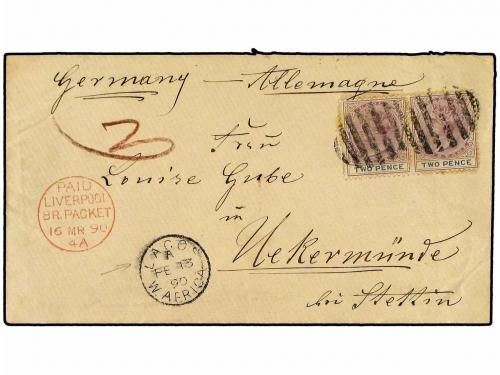 Germany — Allemagne
TWO PENCE TWO PENCE
Frau
Louise Gube
in
Uekermünde
bei Stettin
PAID
LIVERPOOL
BR. PACKET
16 MR 90
4A
LAGOS
A
FE 13
90
W. AFRICA